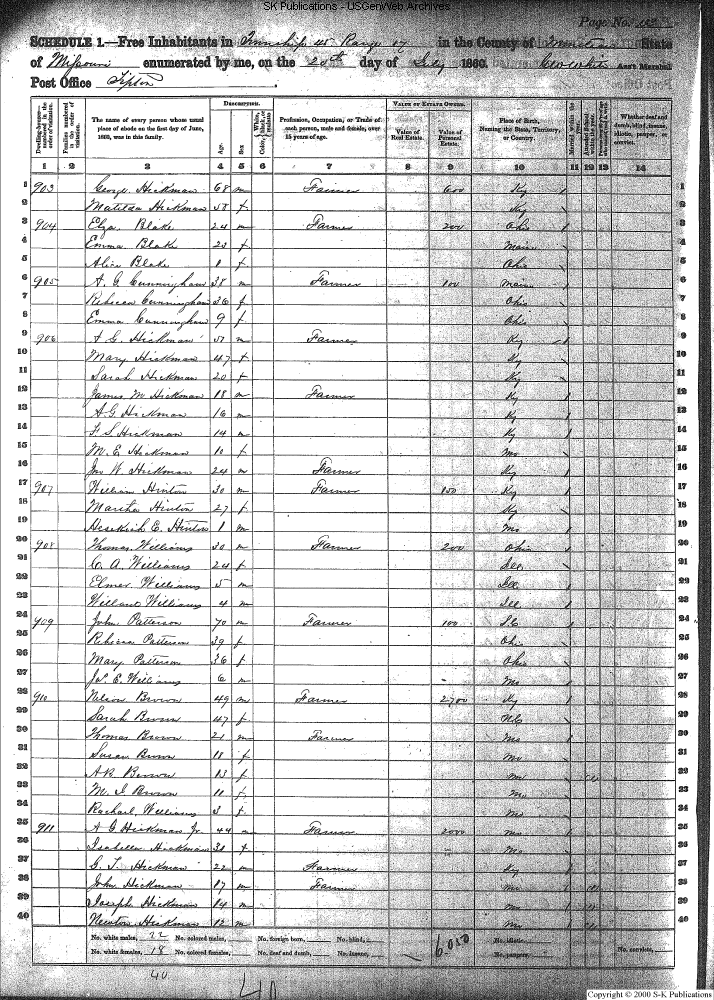 SK Publications - USGenWeb Archives
Page No.
SCHEDULE 1.—Free Inhabitants in Township 45 Range 17 in the County of State
of Missouri enumerated by me, on the 20th day of July 1860. Ass't Marshal
Post Office Tipton
Dwelling-houses—numbered in the order of visitation.
Families numbered in the order of visitation.
The name of every person whose usual place of abode on the first day of June, 1860, was in this family.
DESCRIPTION.
Age.
Sex
Color, White, black, or mulatto
Profession, Occupation, or Trade of each person, male and female, over 15 years of age.
VALUE OF ESTATE OWNED.
Value of Real Estate.
Value of Personal Estate.
Place of Birth, Naming the State, Territory, or Country.
Whether deaf and dumb, blind, insane, idiotic, pauper, or convict.
1 2 3 4 5 6 7 8 9 10 11 12 13 14
1 903 George Hickman 68 m Farmer 600 Ky 1
2 Matilda Hickman 58 f Ky 2
3 904 Blake 24 m Farmer 200 Ohio 3
4 Emma Blake 23 f Main 4
5 Alice Blake 1 f Ohio 5
6 905 A. G. Cunningham 38 m Farmer 100 Main 6
7 Rebecca Cunningham 36 f Ohio 7
8 Emma Cunningham 9 f Ohio 8
9 906 A G. Hickman 51 m Farmer Ky 9
10 Mary Hickman 47 f Ky 10
11 Sarah Hickman 20 f Ky 11
12 James M Hickman 18 m Farmer Ky 12
13 A G Hickman 16 m Ky 13
14 F. S Hickman 14 m Ky 14
15 M. E Hickman 10 f Mo 15
16 Jno W. Hickman 24 m Farmer Ky 16
17 907 William Hinton 30 m Farmer 150 Ky 17
18 Martha Hinton 27 f Ky 18
19 E. Hinton 1 m Mo 19
20 908 Thomas Williams 30 m Farmer 200 Ohio 20
21 C. A Williams 24 f Ill 21
22 Elmer Williams 5 m Ill 22
23 Williams 4 m Ill 23
24 909 John Patterson 70 m Farmer 100 24
25 Rebecca Patterson 39 f Ohio 25
26 Mary Patterson 36 f Ohio 26
27 E. Williams 6 m Mo 27
28 910 Nelson Brown 49 m Farmer 2700 Ky 28
29 Sarah Brown 47 f 29
30 Thomas Brown 21 m Farmer Mo 30
31 Susan Brown 18 f Mo 31
32 Brown 13 f Mo 32
33 M. J Brown 11 f Mo 33
34 Rachael Williams 3 f Mo 34
35 911 A G Hickman Jr 44 m Farmer 2000 Mo 35
36 Isabella Hickman 38 f Mo 36
37 G. T. Hickman 22 m Farmer Ky 37
38 John Hickman 17 m Farmer Mo 38
39 Joseph Hickman 14 m Mo 39
40 Newton Hickman 12 m Mo 40
No. white males, 22 No. colored males, No. foreign born, No. blind, No. idiotic,
No. white females, 18 No. colored females, No. deaf and dumb, No. insane, 6,050 No. paupers, No. convicts,
40
40
Copyright © 2000 S-K Publications